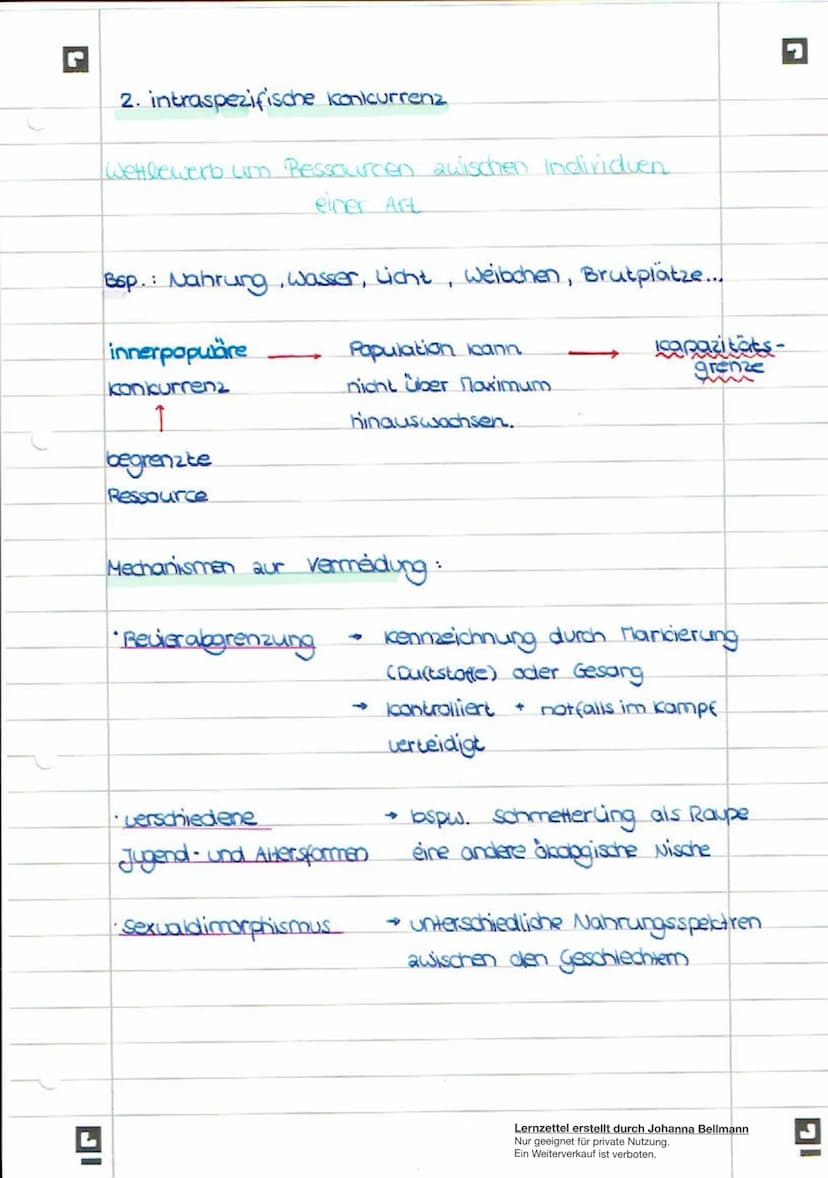 2. intraspezifische Konkurrenz
Wettbewerb um Ressourcen zwischen Individuen
einer Art
Bsp.: Nahrung, Wasser, Licht, Weibchen, Brutplätze...
innerpopuläre → Population kann → Kapazitäts-
Konkurrenz nicht über Maximum grenze
↑ hinauswachsen.
begrenzte
Ressource
Mechanismen zur Vermeidung:
· Revierabgrenzung → Kennzeichnung durch Markierung
(Duftstoffe) oder Gesang
→ kontrolliert + notfalls im Kampf
verteidigt
· verschiedene → bspw. Schmetterling als Raupe
Jugend- und Altersformen eine andere ökologische Nische
· Sexualdimorphismus → unterschiedliche Nahrungsspektren
zwischen den Geschlechtern
Lernzettel erstellt durch Johanna Bellmann
Nur geeignet für private Nutzung.
Ein Weiterverkauf ist verboten.